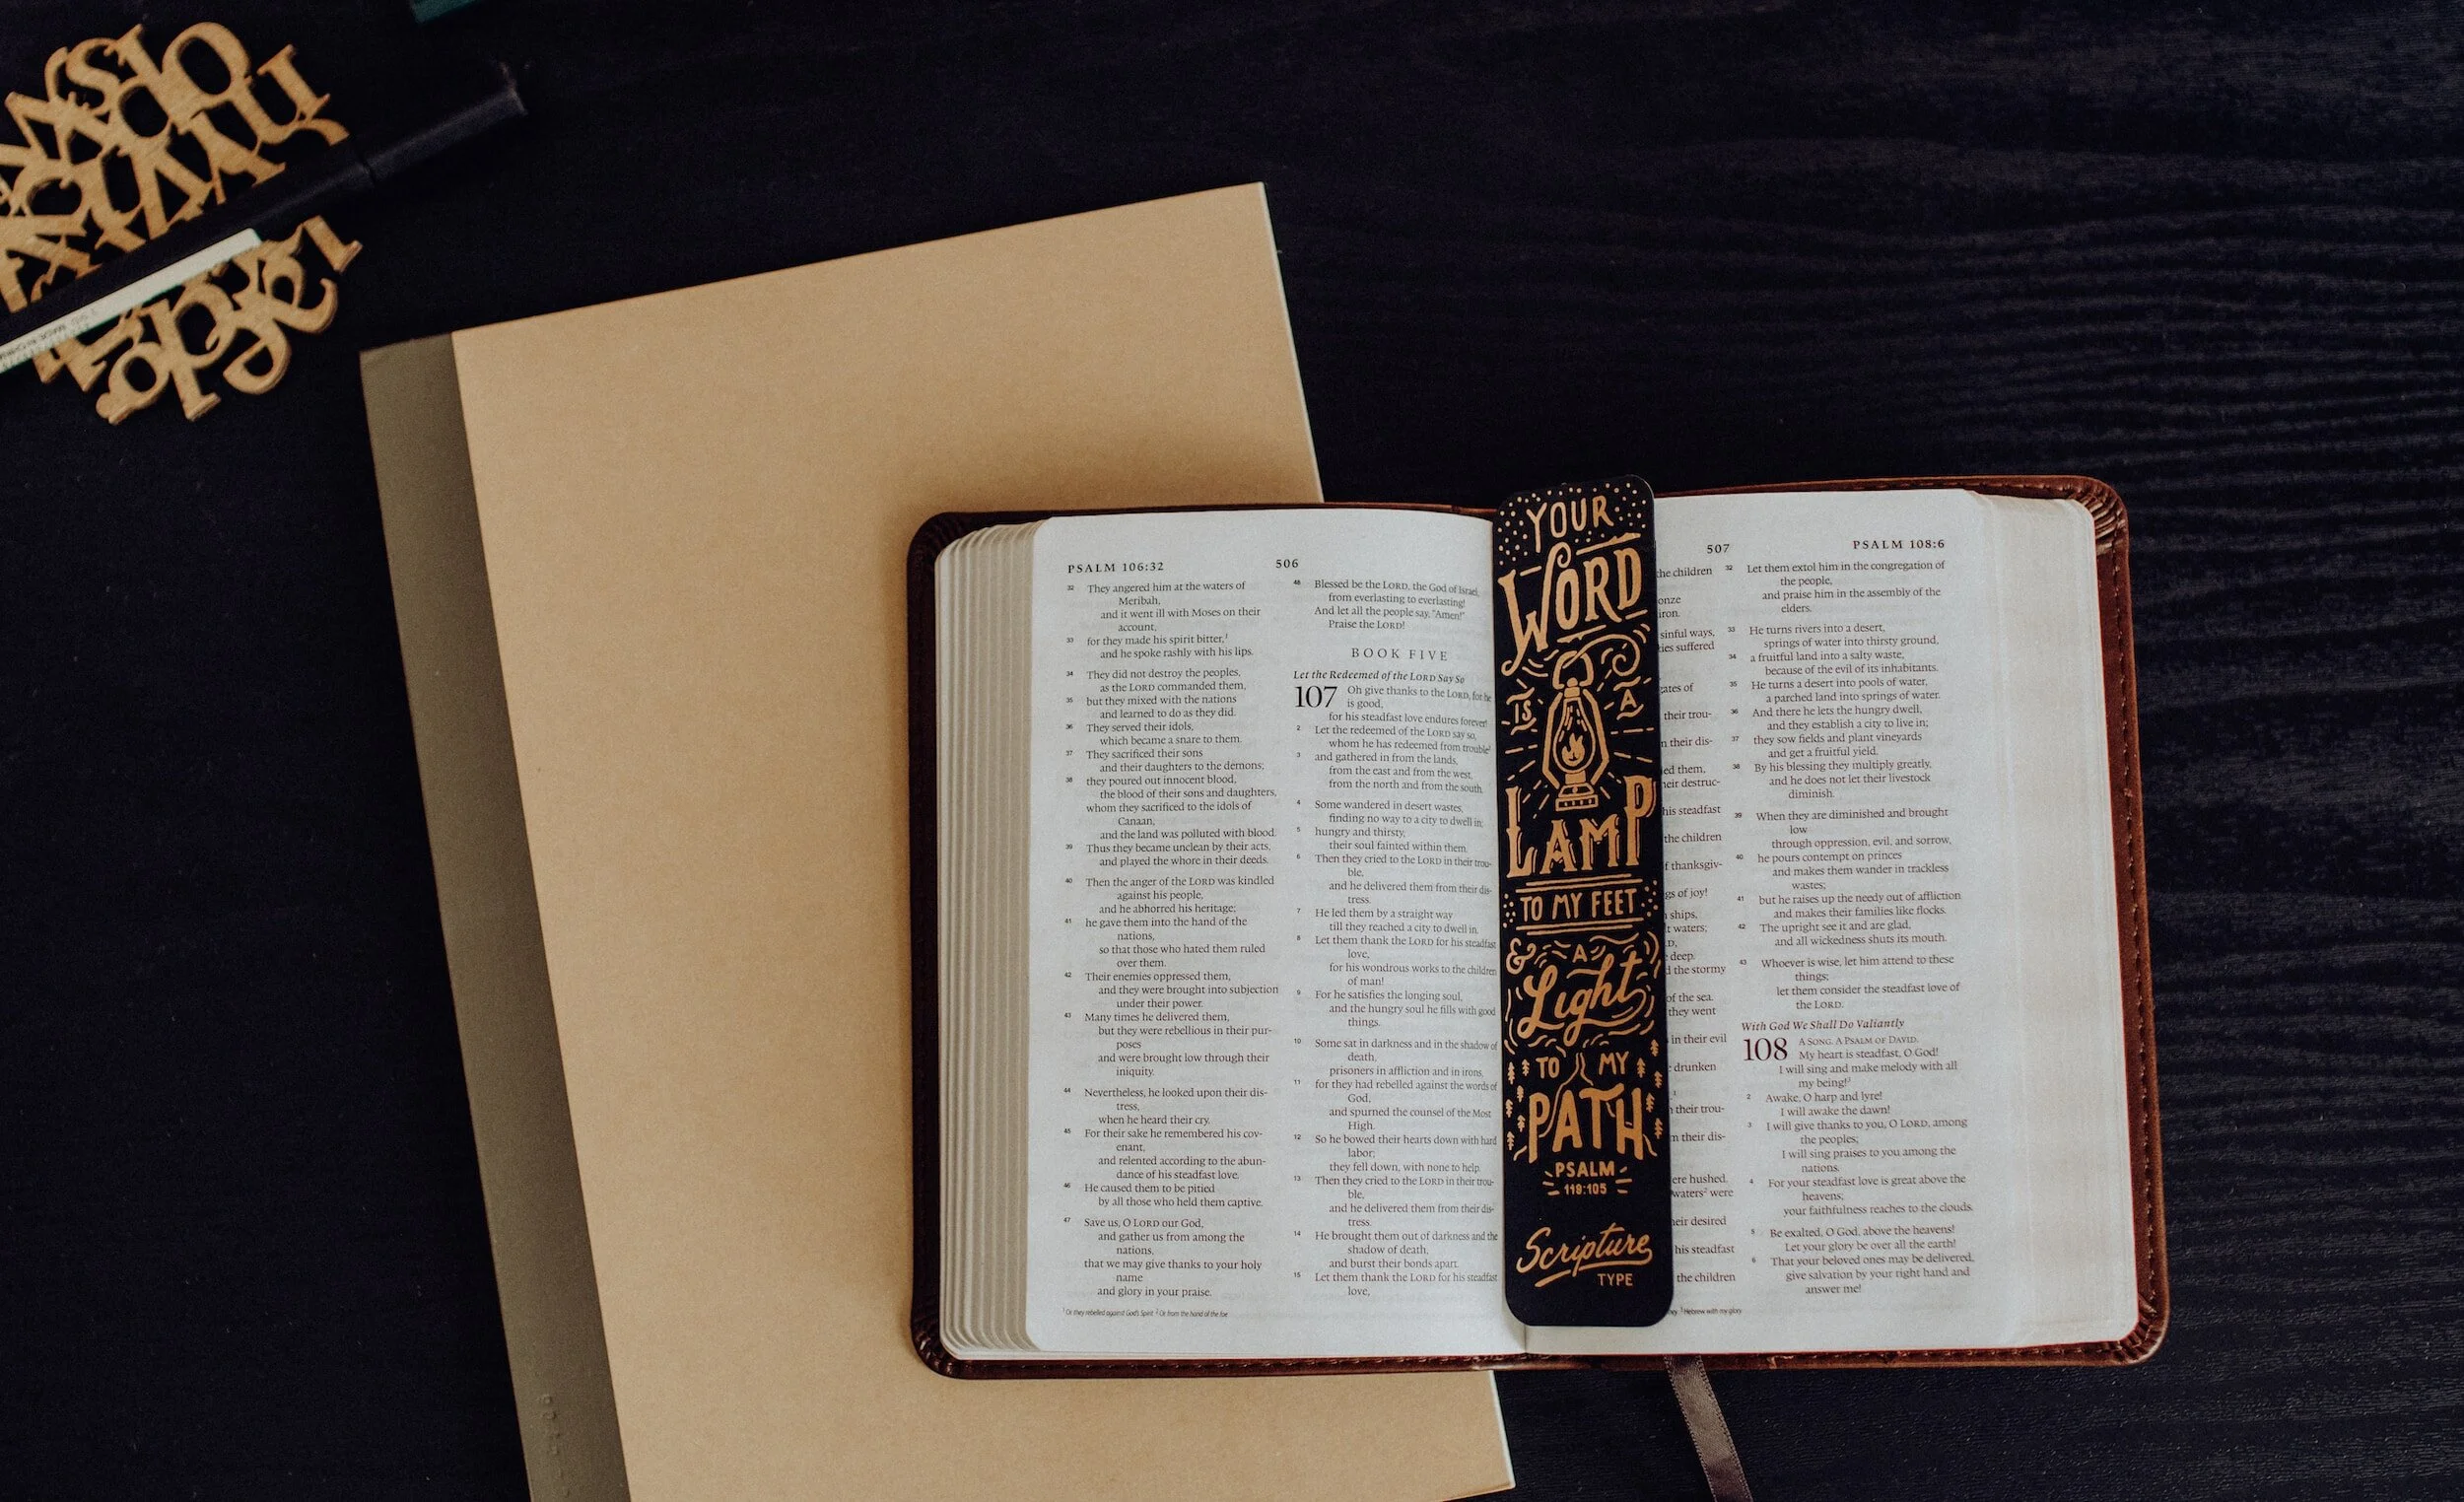 PSALM 106:32
506
32 They angered him at the waters of
Meribah,
and it went ill with Moses on their
account,
33 for they made his spirit bitter,1
and he spoke rashly with his lips.
34 They did not destroy the peoples,
as the LORD commanded them,
35 but they mixed with the nations
and learned to do as they did.
36 They served their idols,
which became a snare to them.
37 They sacrificed their sons
and their daughters to the demons;
38 they poured out innocent blood,
the blood of their sons and daughters,
whom they sacrificed to the idols of
Canaan,
and the land was polluted with blood.
39 Thus they became unclean by their acts,
and played the whore in their deeds.
40 Then the anger of the LORD was kindled
against his people,
and he abhorred his heritage;
41 he gave them into the hand of the
nations,
so that those who hated them ruled
over them.
42 Their enemies oppressed them,
and they were brought into subjection
under their power.
43 Many times he delivered them,
but they were rebellious in their pur-
poses
and were brought low through their
iniquity.
44 Nevertheless, he looked upon their dis-
tress,
when he heard their cry.
45 For their sake he remembered his cov-
enant,
and relented according to the abun-
dance of his steadfast love.
46 He caused them to be pitied
by all those who held them captive.
47 Save us, O LORD our God,
and gather us from among the
nations,
that we may give thanks to your holy
name
and glory in your praise.
1 Or they rebelled against God's Spirit 2 Or from the hand of the foe
48 Blessed be the LORD, the God of Israel,
from everlasting to everlasting!
And let all the people say, "Amen!"
Praise the LORD!
BOOK FIVE
Let the Redeemed of the LORD Say So
107 Oh give thanks to the LORD, for he
is good,
for his steadfast love endures forever!
2 Let the redeemed of the LORD say so,
whom he has redeemed from trouble1
3 and gathered in from the lands,
from the east and from the west,
from the north and from the south.
4 Some wandered in desert wastes,
finding no way to a city to dwell in;
5 hungry and thirsty,
their soul fainted within them.
6 Then they cried to the LORD in their trou-
ble,
and he delivered them from their dis-
tress.
7 He led them by a straight way
till they reached a city to dwell in.
8 Let them thank the LORD for his steadfast
love,
for his wondrous works to the children
of man!
9 For he satisfies the longing soul,
and the hungry soul he fills with good
things.
10 Some sat in darkness and in the shadow of
death,
prisoners in affliction and in irons,
11 for they had rebelled against the words of
God,
and spurned the counsel of the Most
High.
12 So he bowed their hearts down with hard
labor;
they fell down, with none to help.
13 Then they cried to the LORD in their trou-
ble,
and he delivered them from their dis-
tress.
14 He brought them out of darkness and the
shadow of death,
and burst their bonds apart.
15 Let them thank the LORD for his steadfast
love,
YOUR
WORD
IS A
LAMP
TO MY FEET
& A
Light
TO MY
PATH
PSALM
119:105
Scripture
TYPE
507
PSALM 108:6
the children
onze
iron.
sinful ways,
ies suffered
gates of
their trou-
n their dis-
ed them,
heir destruc-
his steadfast
the children
f thanksgiv-
gs of joy!
ships,
t waters;
deep.
d the stormy
of the sea.
they went
in their evil
drunken
their trou-
m their dis-
ere hushed.
waters2 were
heir desired
his steadfast
the children
3 Hebrew with my glory
32 Let them extol him in the congregation of
the people,
and praise him in the assembly of the
elders.
33 He turns rivers into a desert,
springs of water into thirsty ground,
34 a fruitful land into a salty waste,
because of the evil of its inhabitants.
35 He turns a desert into pools of water,
a parched land into springs of water.
36 And there he lets the hungry dwell,
and they establish a city to live in;
37 they sow fields and plant vineyards
and get a fruitful yield.
38 By his blessing they multiply greatly,
and he does not let their livestock
diminish.
39 When they are diminished and brought
low
through oppression, evil, and sorrow,
40 he pours contempt on princes
and makes them wander in trackless
wastes;
41 but he raises up the needy out of affliction
and makes their families like flocks.
42 The upright see it and are glad,
and all wickedness shuts its mouth.
43 Whoever is wise, let him attend to these
things;
let them consider the steadfast love of
the LORD.
With God We Shall Do Valiantly
108 A SONG. A PSALM OF DAVID.
My heart is steadfast, O God!
I will sing and make melody with all
my being!3
2 Awake, O harp and lyre!
I will awake the dawn!
3 I will give thanks to you, O LORD, among
the peoples;
I will sing praises to you among the
nations.
4 For your steadfast love is great above the
heavens;
your faithfulness reaches to the clouds.
5 Be exalted, O God, above the heavens!
Let your glory be over all the earth!
6 That your beloved ones may be delivered,
give salvation by your right hand and
answer me!